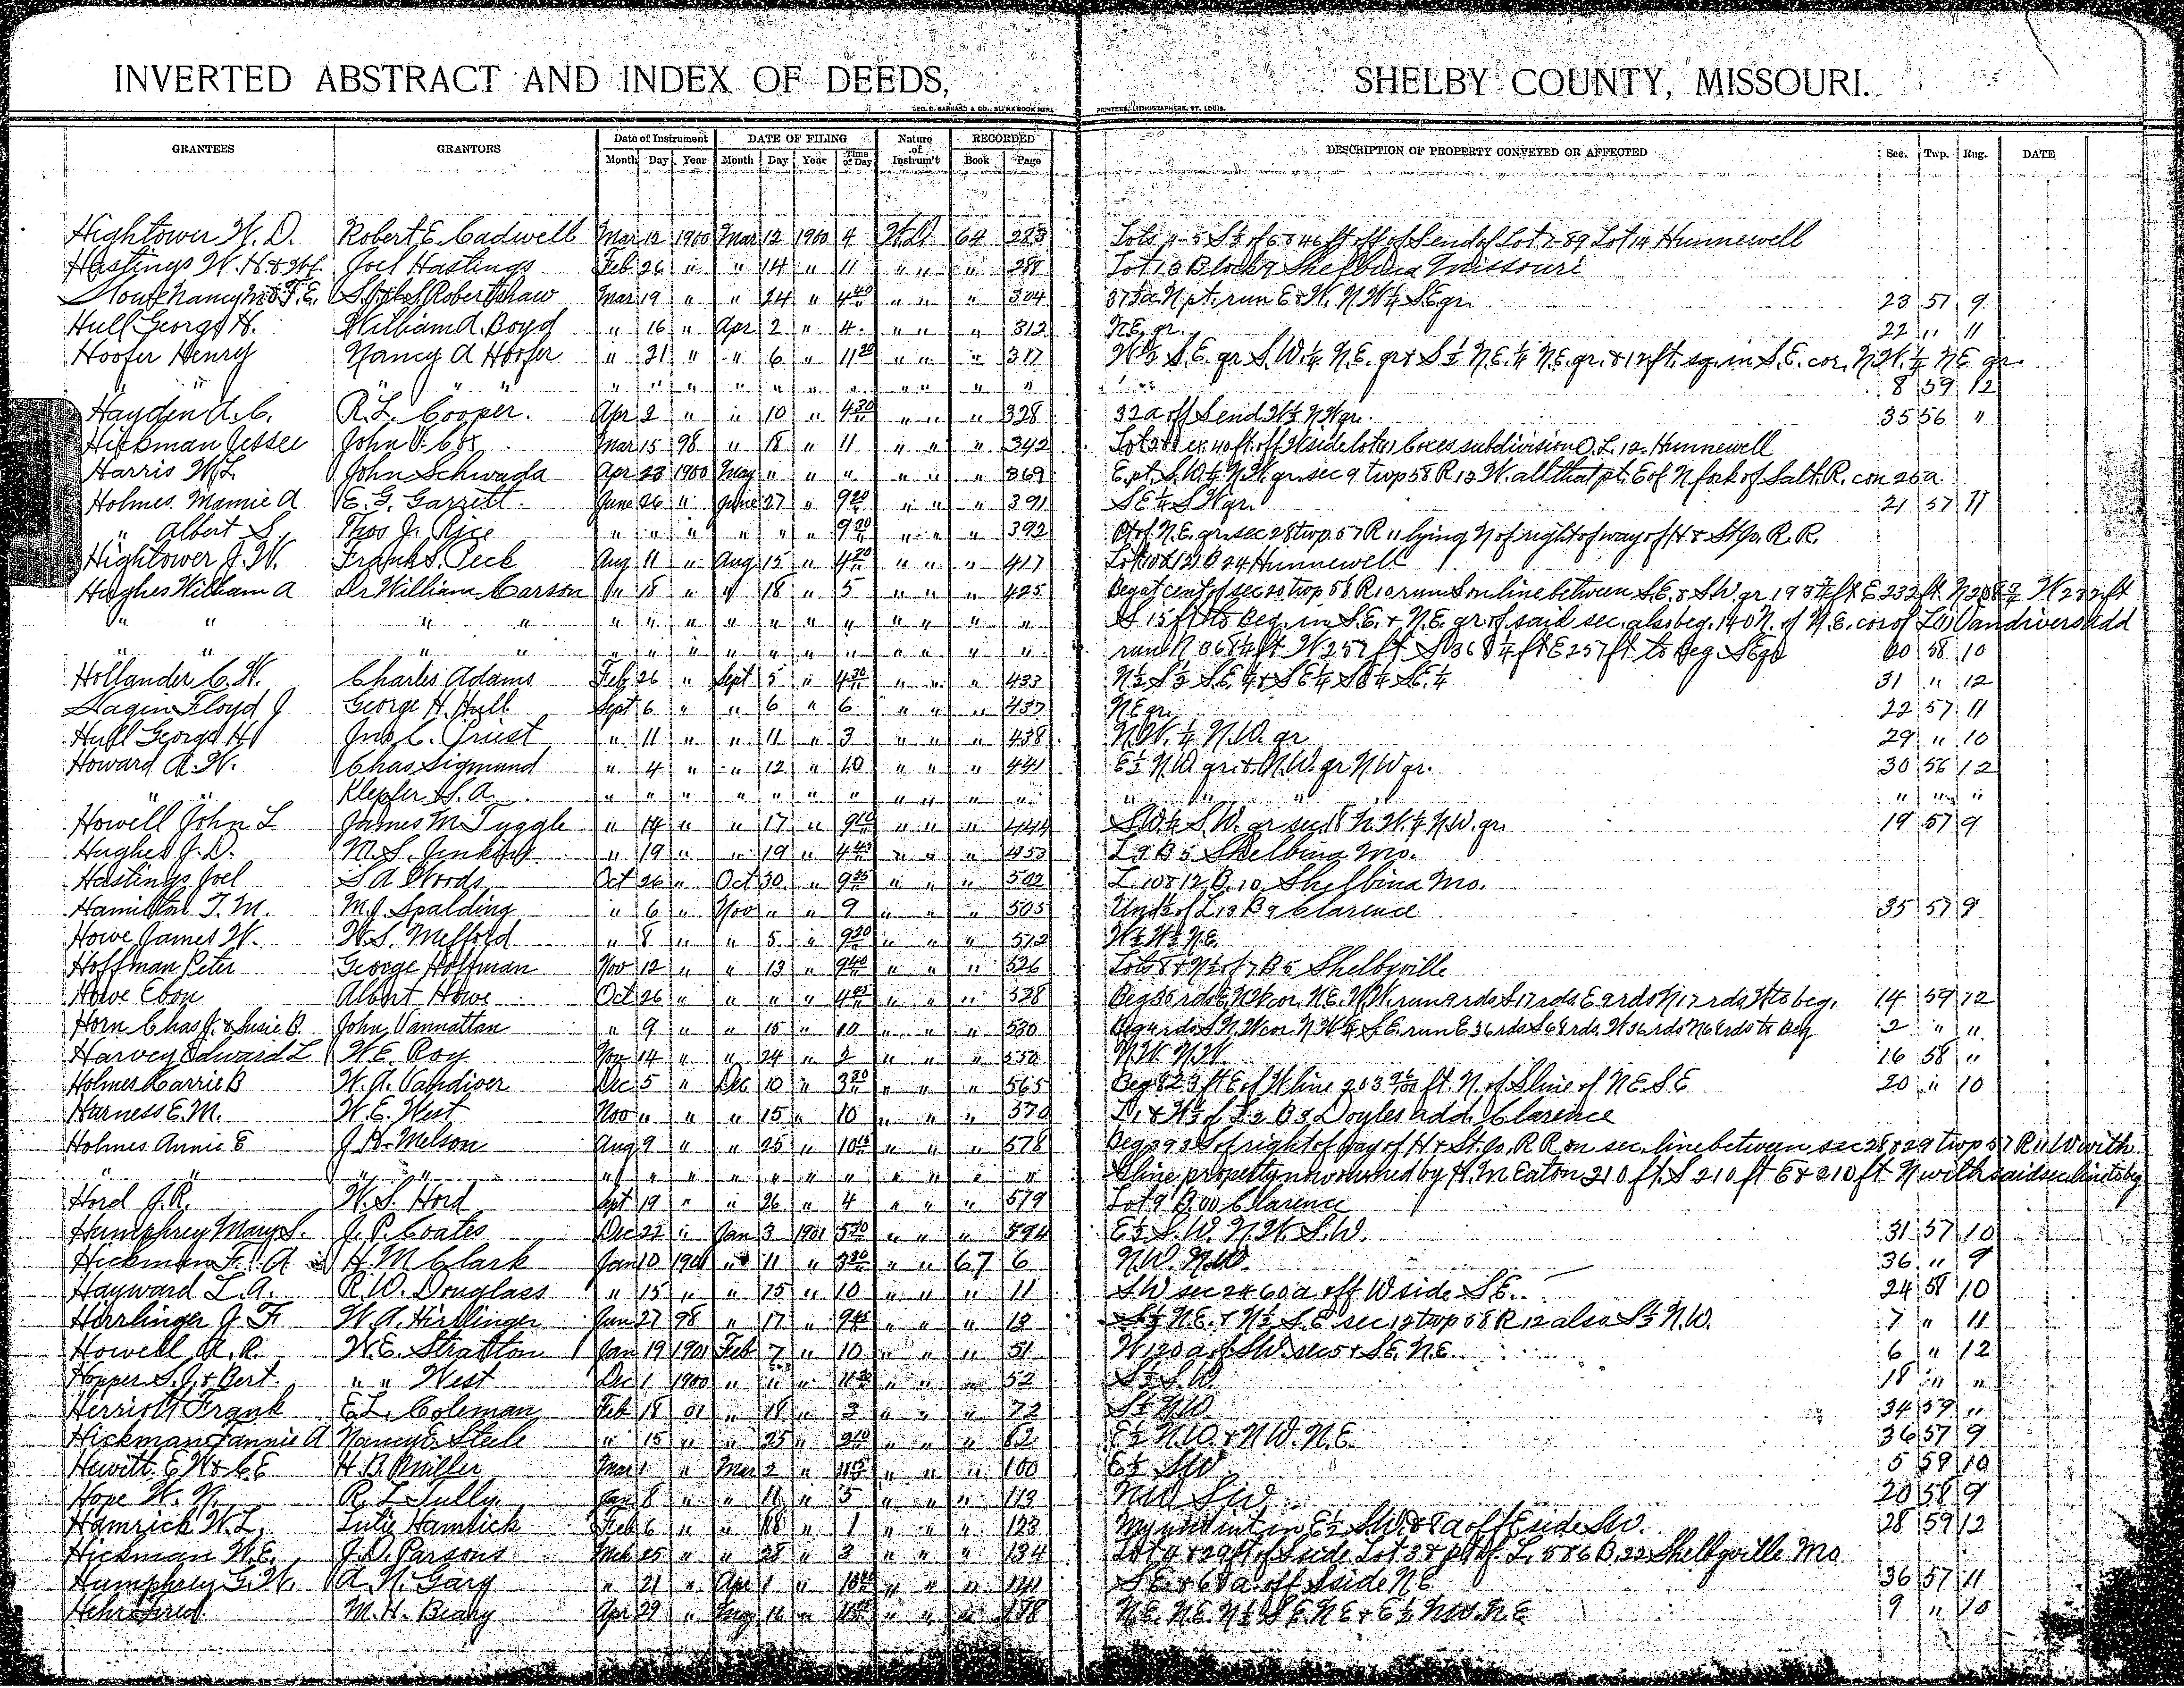 INVERTED ABSTRACT AND INDEX OF DEEDS, SHELBY COUNTY, MISSOURI.
GEO. D. BARNARD & CO., BLANK BOOK MFRS. PRINTERS, LITHOGRAPHERS, ST. LOUIS.
GRANTEES GRANTORS Date of Instrument DATE OF FILING Nature of Instrum't RECORDED DESCRIPTION OF PROPERTY CONVEYED OR AFFECTED Sec. Twp. Rng. DATE
Month Day Year Month Day Year Time of Day Book Page
Hightower W. D. Robert E. Cadwell Mar 12 1900 Mar 12 1900 4 W.D. 64 283 Lots 4-5 S½ of 6 & 46 ft off of S end of Lot 7-89 Lot 14 Hunnewell
Hastings W. H. & Wf. Joel Hastings Feb 26 " " 14 " 11 " " 288 Lot 13 Block 9 Shelbina Missouri
Robertshaw Mar 19 " " 24 " 4 40 " " " 304 37½a N pt. run E & W. N W¼ S.E qr. 23 57 9
Hull George H. William A. Boyd " 16 " Apr 2 " 4 " " " 312 N.E. qr. 22 " 11
Hoofer Henry Nancy A Hoofer " 21 " " 6 " 11 20 " " " 317 W½ S.E. qr S.W.¼ N.E. qr & S½ N.E.¼ N.E. qr. & 12 ft. sq. in S.E. cor. N.W.¼ N E qr
" " " " " " " " " " " " " " " " 8 59 12
Hayden A. C. R. L. Cooper. Apr 2 " " 10 " 4 30 " " " 328 32a off S end W½ N W qr. 35 56 "
Hickman Jessee John V. Cox Mar 15 98 " 18 " 11 " " " 342 ex 40 ft. off W side lot Coxes subdivision O.L. 12 Hunnewell
Harris W. L. John Schwada Apr 23 1900 May " " " " " " 369 E. pt. S.W.¼ N.W. qr. sec 9 twp 58 R 12 W. all that pt. E of N fork of Salt. R. con 25 a.
Holmes Mamie A E. G. Garrett June 26 " June 27 " 9 20 " " " 391 S E¼ S W qr. 21 57 11
" Albert S. Thos J. Rice " " " " " " 9 20 " " " 392 Pt of N.E. qr. sec 28 twp. 57 R 11 lying N of right of way of H & St Jo. R. R.
Hightower J. W. Frank S. Peck Aug 11 " Aug 15 " 4 20 " " " 417 B 24 Hunnewell
Hughes William A Dr William Carson " 18 " " 18 " 5 " " " 425 Beg at cent of sec 20 twp 58 R 10 run S on line between S.E. & S.W. qr 193¾ ft E 232 ft. N 208¾ W 232 ft
" " " " " " " " " " " " " " " S 15 ft to Beg. in S.E. & N.E. qr of said sec. also beg. 140 N. of N.E. cor of L 6 Vandivers add
" " " " " " " " " " " " " " " run N 368¼ ft W 257 ft S 368¼ ft E 257 ft to Beg. S.E qr 20 58 10
Hollander C. W. Charles Adams Feb 26 " Sept 5 " 4 30 " " " 433 N½ S½ S.E.¼ & S E¼ S E¼ S.E.¼ 31 " 12
Hagin Floyd J George H. Hull Sept 6 " " 6 " 6 " " " 437 N.E qr. 22 57 11
Hull George H Jno. C. Priest " 11 " " 11 " 3 " " " 438 N.W.¼ N.W. qr 29 " 10
Howard A. W. Chas Sigmund " 4 " " 12 " 10 " " " 441 E½ N.W qr & N.W. qr N W qr. 30 56 12
" " Klepfer S. A. " " " " " " " " " " " " " " " " "
Howell John L James M. Tuggle " 14 " " 17 " 9 " " " 444 S.W.¼ S.W. qr sec 18 N.W.¼ N.W. qr. 19 57 9
Hughes J. D. M. S. Jenkins " 19 " " 19 " 4 45 " " " 453 L 9 B 5 Shelbina Mo.
Hastings Joel S A Woods Oct 26 " Oct 30 " 9 25 " " " 502 L. 10 & 12 B. 10 Shelbina Mo.
Hamilton T. M. M. J. Spalding " 6 " Nov " " 9 " " " 505 Und½ of L 13 B 9 Clarence 35 57 9
Howe James W. W. S. Mefford " 8 " " 5 " 9 20 " " " 512 W½ W½ N.E.
Hoffman Peter George Hoffman Nov 12 " " 13 " 9 40 " " " 526 Lots 8 & N½ of 7 B 5 Shelbyville
Howe Ebon Albert Howe Oct 26 " " " " 4 " " " 528 Beg 36 rds E N W cor. N.E. N.W. run 9 rds S 17 rds. E 9 rds N 17 rds. W to beg. 14 59 12
Horn Chas J. & Susie B. John Vannattan " 9 " " 15 " 10 " " " 530 Beg 4 rds S N. W cor N W¼ S.E. run E 36 rds S 68 rds. W 36 rds N 68 rds to Beg 2 " "
Harvey Edward L W. E. Roy Nov 14 " " 24 " 2 " " " 550 N.W N.W. 16 58 "
Holmes Carrie B W. A. Vandiver Dec 5 " Dec 10 " 3 30 " " " 565 Beg 823 ft E of W line 203 96/100 ft. N. of S line of N E S E 20 " 10
Harness E. M. W. E. West Nov " " " 15 " 10 " " " 570 L. 1 & W½ of L 2 B 3 Doyles add. Clarence
Holmes Annie E J. H. Melson Aug 9 " " 25 " 10 15 " " " 578 Beg 293 S of right of way of H & St. Jo, R R on sec. line between sec 28 & 29 twp 57 R 11 W with
" " " " " " " " " " " " " " S line property now owned by H. M Eaton 210 ft. S 210 ft E & 210 ft N with said sec. line to beg
Hord J. R. W. S. Hord Spt 19 " " 26 " 4 " " " 579 Lot 9 B. Clarence
Humphrey Mary S. J. P. Coates Dec 22 " Jan 3 1901 5 30 " " " 594 E½ S.W. N.W. S.W. 31 57 10
Hickman F. A H. M Clark Jan 10 1901 " 11 " 3 30 " " 67 6 N.W. N.W. 36 " 9
Hayward L. A. R. W. Douglass " 15 " " 15 " 10 " " " 11 S W sec 24 60 a off W side S E. 24 58 10
Hirrlinger J. F. W. A. Hirrlinger Jun 27 98 " 17 " 9 45 " " " 13 S½ N.E. & N½ S.E sec 12 twp 58 R 12 also S½ N.W. 7 " 11
Howell A. R. W. E. Stratton Jan 19 1901 Feb 7 " 10 " " " 51 W 120 a of S W. sec 5 & S.E. N.E. 6 " 12
Hopper S. J. & Bert. " " West Dec 1 1900 " " " 11 " " " 52 S½ S.W. 18 " "
Herriott Frank E. L. Coleman Feb 18 01 " 18 " 3 " " " 72 S½ N.W 34 59 "
Hickman Fannie A Nancy E Steele " 15 " " 25 " 2 10 " " " 82 E½ N.W. & N.W. N.E. 36 57 9
Hewitt E W & C E H. B. Miller Mar 1 " Mar 2 " 11 15 " " " 100 E½ S.W 5 59 10
Hope W. N. R. L. Tully Jan 8 " " 11 " 5 " " " 113 NW SW 20 58 9
Hamrick W. L. Lutie Hamrick Feb 6 " " 18 " 1 " " " 123 My und int in E½ S.W. & 8 a off E side S.W. 28 59 12
Hickman W. E. J. D. Parsons Mch 25 " " 28 " 3 " " " 134 Lot 4 & 29 ft of S side Lot 3 & pt of L. 5 & 6 B. 22 Shelbyville Mo
Humphrey G. W. A. N. Gary " 21 " Apr 1 " 10 " " " 141 S E. & 60 a. off S side N E 36 57 11
Hehr Fred M. H. Beany Apr 29 " May 16 " " " " 188 N.E. N.E. N½ S.E. N E & E½ N.W. N.E 9 " 10